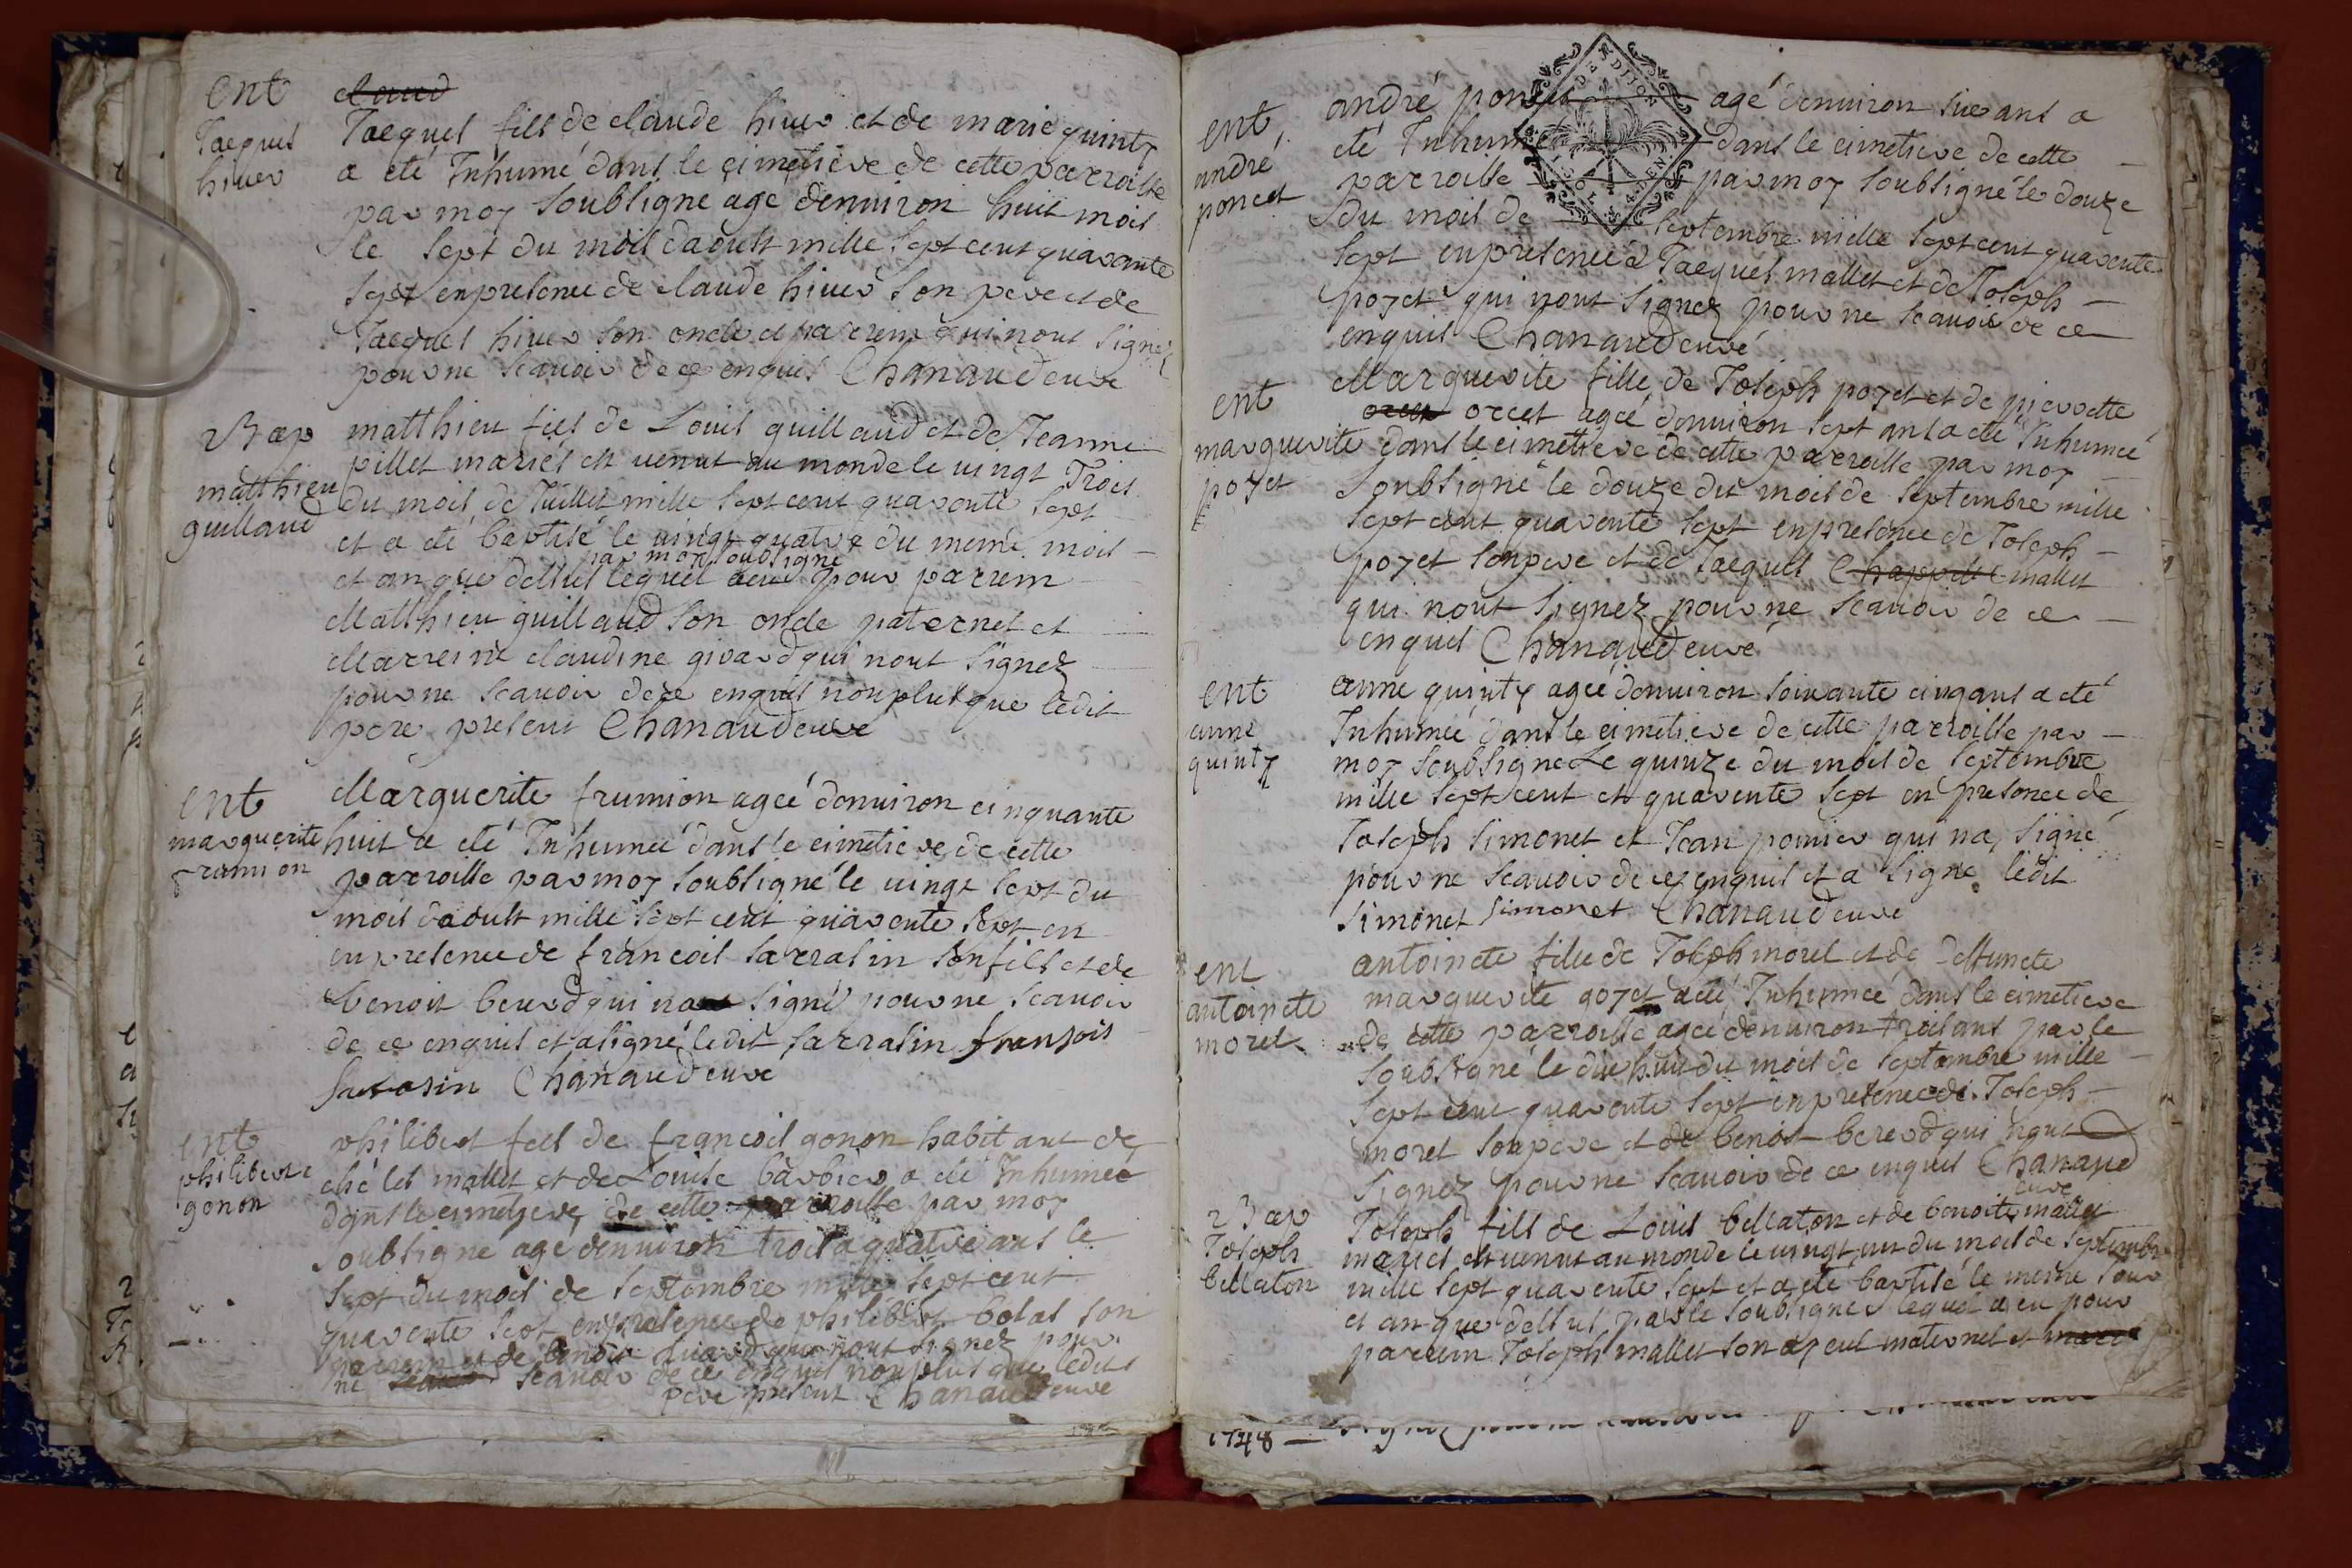 ent
Jacques
hiver
claud
Jacques fils de claude hiver et de marie quinty
a eté Inhumé dans le cimetiere de cette parroisse
par moy soubsigne agé denuiron huit mois
le sept du mois daoust mille sept cent quarante
sept enpresence de claude hiver son pere et de
Jacques hiver son oncle et parrein qui nont signez
pour ne scauoir de ce enquis Chanaud curé
Bap
matthieu
guillaud
matthieu fils de Louis guillaud et de Jeanne
pillet mariés est venut au monde le uingt Trois
du mois de Juillet mille sept cent quarante sept
et a eté baptisé le uingt quatre du meme mois
par moy soubsigné
et an que dessus lequel a eu pour parrein
Matthieu guillaud son oncle paternel et
Marreine claudine girard qui nont signez
pour ne scauoir de ce enquis non plus que ledit
pere present Chanaud curé
ent
marguerite
frumion
Marguerite frumion ageé denuiron cinquante
huit a eté Inhumeé dans le cimetiere de cette
parroisse par moy soubsigné le uingt sept du
mois daoust mille sept cent quarente sept en
enpresence de francois sarrasin son fils et de
benoit berard qui na signé pour ne scauoir
de ce enquis et a signé ledit sarrasin fransois
sarasin Chanaud curé
ent
philiberte
gonon
philibert fils de francois gonon habitant de
ché les mallet et de Louise barbier a eté Inhumeé
dans le cimetiere de cette parroisse par moy
soubsigné age denuiron trois a quatre ans le
sept du mois de septembre mille sept cent
quarente sept enpresence de philibert bolas son
parrein et de benoit girard qui nont signez pour
ne scauoir de ce enquis non plus que ledit
pere present Chanaud curé
ent
andré
poncet
andré poncet agé denuiron sixe ans a
eté Inhumé dans le cimetiere de cette
parroisse par moy soubsigné le douze
du mois de septembre mille sept cent quarente
sept enpresence de Jacques mallet et de Joseph
poyet qui nont signez pour ne scauoir de ce
enquis Chanaud curé
ent
marguerite
poyet
Marguerite fille de Joseph poyet et de pierrette
orcet ageé denuiron sept ans a eté Inhumeé
dans le cimetiere de cette parroisse par moy
soubsigné le douze du mois de septembre mille
sept cent quarente sept enpresence de Joseph
poyet son pere et de Jacques Chappelle mallet
qui nont signez pour ne scauoir de ce
enquis Chanaud curé
ent
anne
quinty
anne quinty ageé denuiron soixante cinq ans a eté
Inhumeé dans le cimetiere de cette parroisse par
moy soubsigné Le quinze du mois de septembre
mille sept cent et quarente sept en presence de
Joseph simonet et Jean pomier qui na signé
pour ne scauoir de ce enquis et a signe ledit
simonet simonet Chanaud curé
ent
antoinete
morel
antoinete fille de Joseph morel et de deffuncte
marguerite goyet a eté Inhumeé dans le cimetiere
de cette parroisse ageé denuiron trois ans par le
soubsigné le dix huit du mois de septembre mille
sept cent quarente sept enpresence de Joseph
morel son pere et de benoit berard qui nont
signez pour ne scauoir de ce enquis Chanaud
curé
Bap
Joseph
bellaton
Joseph fils de Louis bellaton et de benoite mallet
mariés est venut au monde le uingt un du mois de septembre
mille sept quarente sept et a eté baptisé le meme Jour
et an que dessus par le soubsigné lequel a eu pour
parrein Joseph mallet son ayeul maternel et
1748
DE DIJON